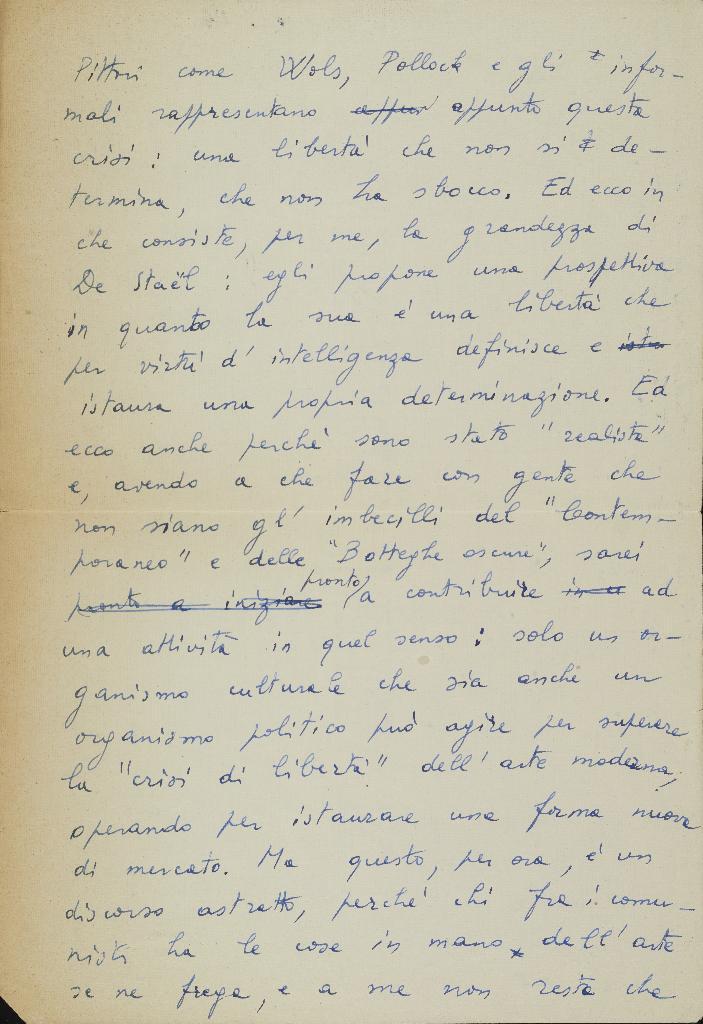 Pittori come Wols, Pollock e gli infor-
mali rappresentano appunto questa
crisi: una libertà che non si de-
termina, che non ha sbocco. Ed ecco in
che consiste, per me, la grandezza di
De Staël: egli propone una prospettiva
in quanto la sua è una libertà che
per virtù d'intelligenza definisce e
istaura una propria determinazione. Ed
ecco anche perché sono stato "realista"
e, avendo a che fare con gente che
non siano gl'imbecilli del "Contem-
poraneo" e delle "Botteghe oscure", sarei
pronto a iniziare pronto a contribuire ad
una attività in quel senso: solo un or-
ganismo culturale che sia anche un
organismo politico può agire per superare
la "crisi di libertà" dell'arte moderna,
operando per istaurare una forma nuova
di mercato. Ma questo, per ora, è un
discorso astratto, perché chi fra i comu-
nisti ha le cose in mano dell'arte
se ne frega, e a me non resta che